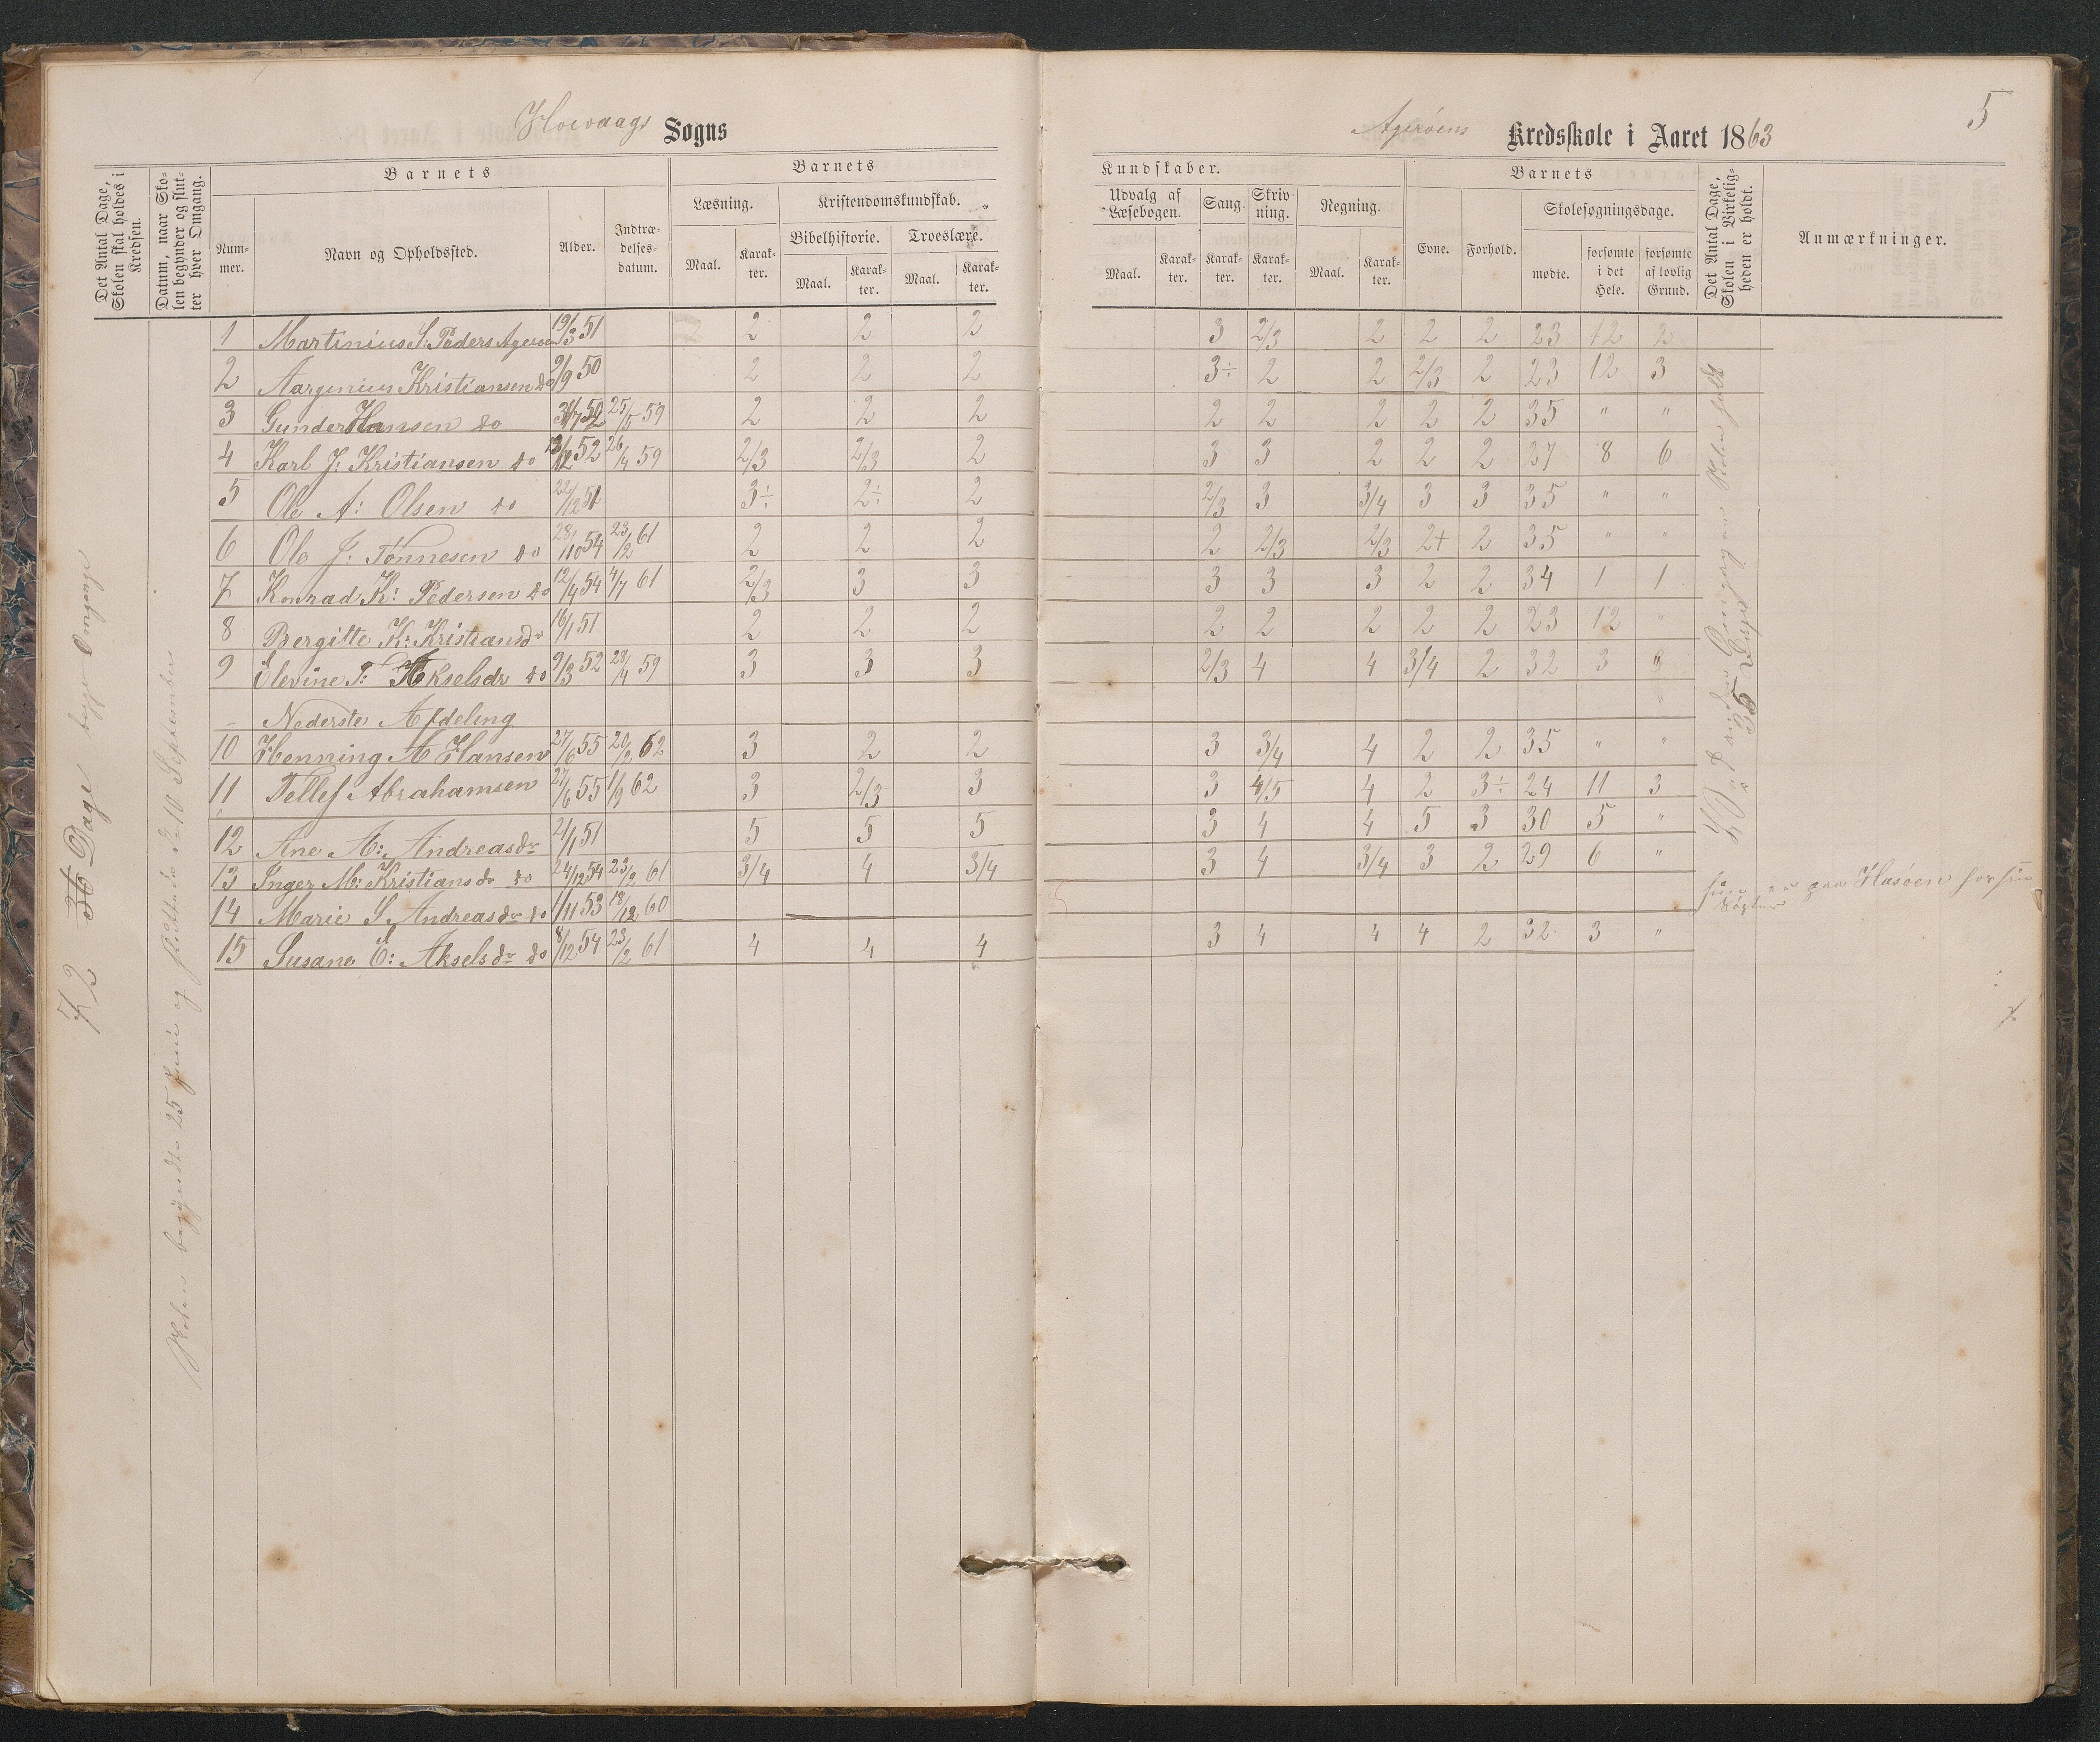 Høivaags Sogns
Agerøens Kredsskole i Aaret 1863
5
Det Antal Dage, Skolen skal holdes i Kredsen.
Datum, naar Skolen begynder og slutter hver Omgang.
Barnets
Nummer.
Navn og Opholdssted.
Alder.
Indtrædelsesdatum.
Barnets
Læsning.
Maal.
Karakter.
Kristendomskundskab.
Bibelhistorie.
Maal.
Karakter.
Troeslære.
Maal.
Karakter.
Kundskaber.
Udvalg af Læsebogen.
Maal.
Karakter.
Sang.
Karakter.
Skrivning.
Karakter.
Regning.
Maal.
Karakter.
Barnets
Evne.
Forhold.
Skolesøgningsdage.
mødte.
forsømte i det Hele.
forsømte af lovlig Grund.
Det Antal Dage, Skolen i Virkeligheden er holdt.
Anmærkninger.
72 36 Dage begge Omgange
Skolen begyndte 25 Juni og sluttede d. 10 September
1 Martinius S: Peders Agerøen 19/3 51 2 2 2 3 2/3 2 2 2 23 12 2
2 Kristiansen do 9/9 50 2 2 2 3÷ 2 2 2/3 2 23 12 3
3 Gunder Hansen do 31/7 50 25/5 59 2 2 2 2 2 2 2 2 35 " "
4 Karl J: Kristiansen do 13/12 52 26/4 59 2/3 2/3 2 3 3 2 2 2 37 8 6
5 Ole A: Olsen do 22/12 51 3÷ 2÷ 2 2/3 3 3/4 3 3 35 " "
6 Ole J: Tønnesen do 28/10 54 23/2 61 2 2 2 2 2/3 2/3 2+ 2 35 " "
7 Konrad K: Pedersen do 12/4 54 4/7 61 2/3 3 3 3 3 3 2 2 34 1 1
8 Bergitte K: Kristiansdr 16/1 51 2 2 2 2 2 2 2 2 23 12 "
9 Elevine T: Akselsdr do 9/3 52 28/4 59 3 3 3 2/3 4 4 3/4 2 32 3 "
Nederste Afdeling
10 Henning A Hansen 27/6 55 20/2 62 3 2 2 3 3/4 4 2 2 35 " "
11 Tellef Abrahamsen 27/6 55 1/9 62 3 2/3 3 3 4/5 4 2 3÷ 24 11 3
12 Ane A: Andreasdr 21/1 51 5 5 5 3 4 4 5 3 30 5 "
13 Inger M: Kristiansdr do 24/12 54 23/2 61 3/4 4 3/4 3 4 3/4 3 2 29 6 "
14 Marie S. Andreasdr do 1/11 53 18/12 60
15 Susane E: Akselsdr do 8/12 54 23/2 61 4 4 4 3 4 4 4 2 32 3 "
Ved anden Omgangen Skolen holdt
35 Dage
hun er paa Hasøen hvor hun
søgter